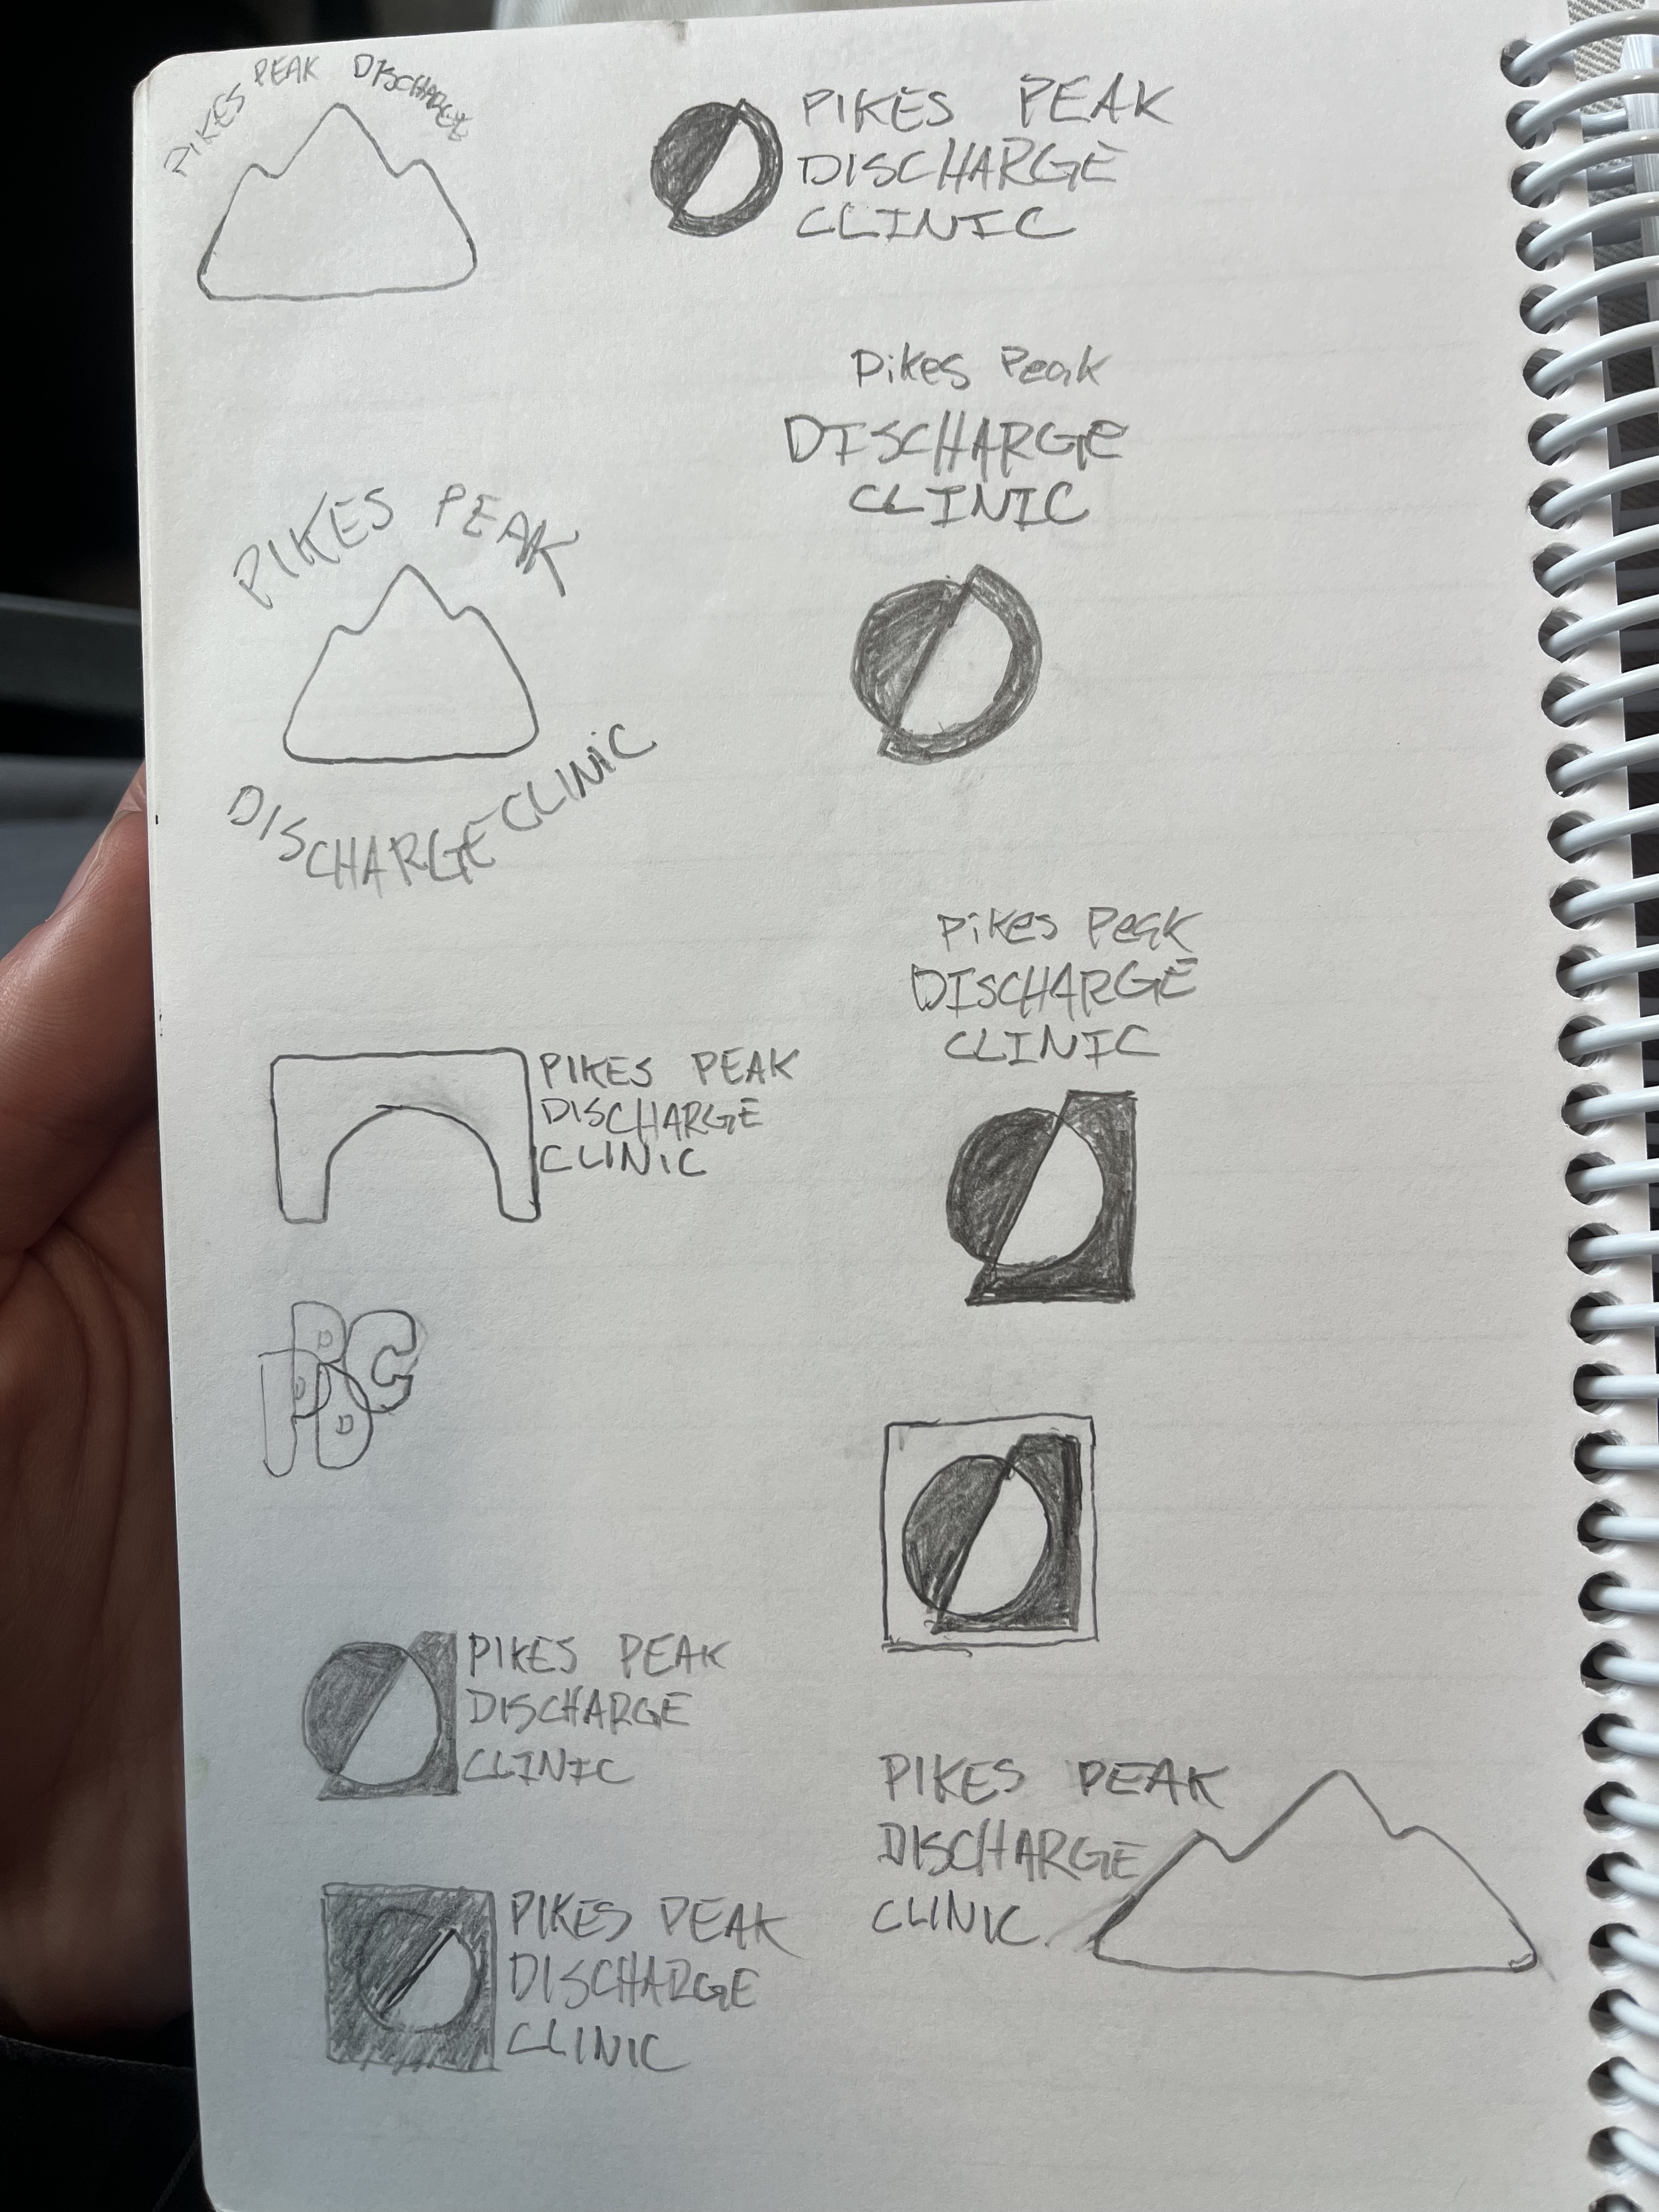 PIKES PEAK DISCHARGE
PIKES PEAK
DISCHARGE
CLINIC
Pikes Peak
DISCHARGE
CLINIC
PIKES PEAK
DISCHARGE CLINIC
Pikes Peak
DISCHARGE
CLINIC
PIKES PEAK
DISCHARGE
CLINIC
PPDC
PIKES PEAK
DISCHARGE
CLINIC
PIKES PEAK
DISCHARGE
CLINIC
PIKES PEAK
DISCHARGE
CLINIC